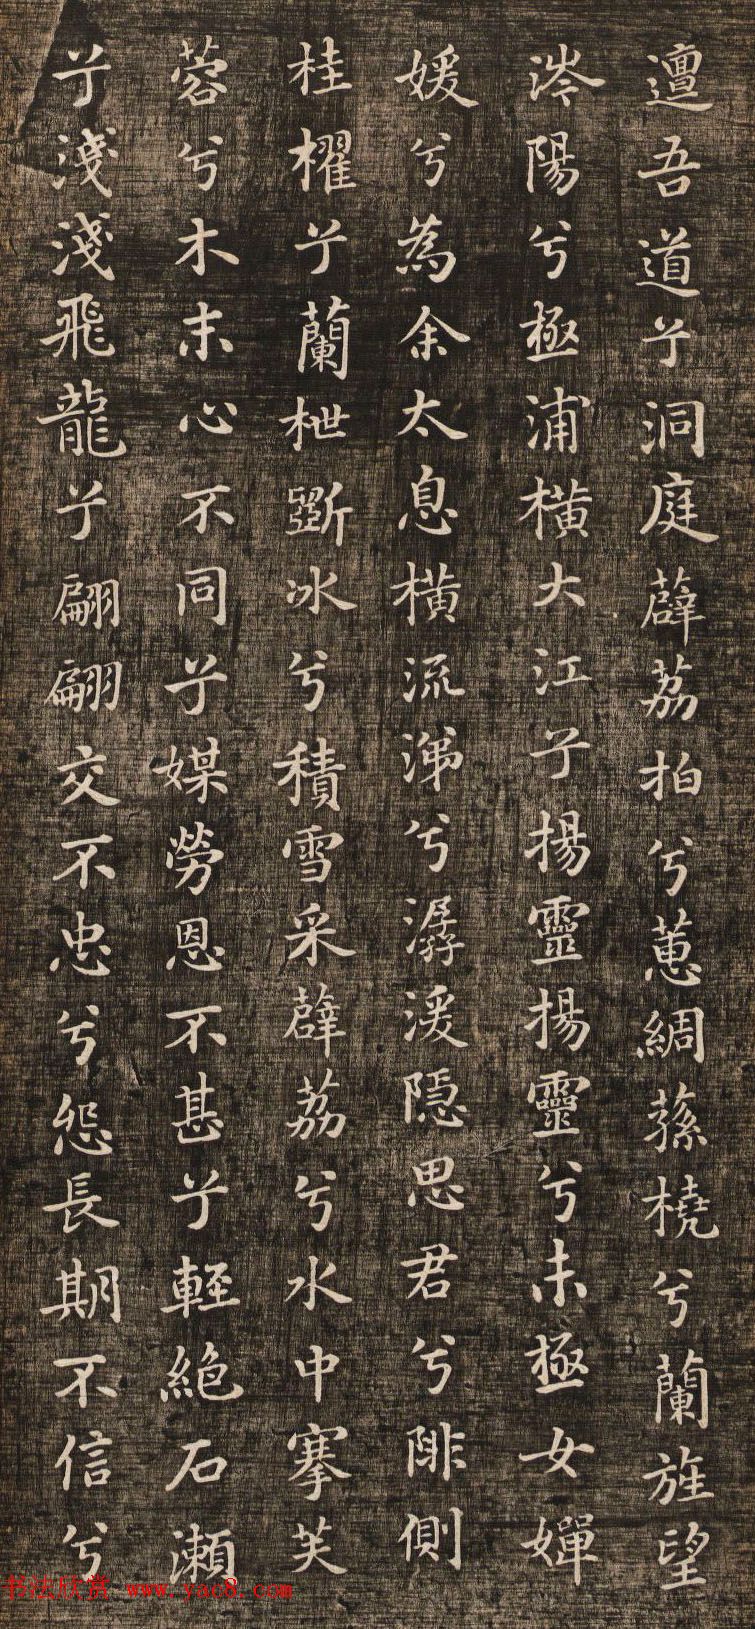 邅吾道兮洞庭薜荔拍兮蕙綢蓀橈兮蘭旌望
涔陽兮極浦橫大江兮揚靈揚靈兮未極女嬋
媛兮為余太息橫流涕兮潺湲隱思君兮陫側
桂櫂兮蘭枻斲冰兮積雪采薜荔兮水中搴芙
蓉兮木末心不同兮媒勞恩不甚兮輕絕石瀨
兮淺淺飛龍兮翩翩交不忠兮怨長期不信兮
书法欣赏 www.yac8.com